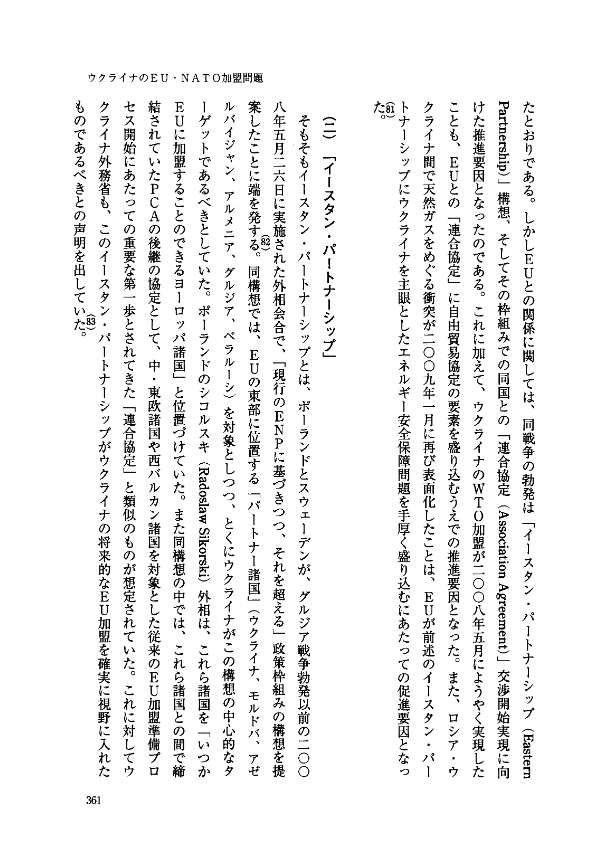 ウクライナのEU・NATO加盟問題
たとおりである。しかしEUとの関係に関しては、同戦争の勃発は「イースタン・パートナーシップ（Eastern
Partnership）」構想、そしてその枠組みでの同国との「連合協定（Association Agreement）」交渉開始実現に向
けた推進要因となったのである。これに加えて、ウクライナのWTO加盟が二〇〇八年五月にようやく実現した
ことも、EUとの「連合協定」に自由貿易協定の要素を盛り込むうえでの推進要因となった。また、ロシア・ウ
クライナ間で天然ガスをめぐる衝突が二〇〇九年一月に再び表面化したことは、EUが前述のイースタン・パー
トナーシップにウクライナを主眼としたエネルギー安全保障問題を手厚く盛り込むにあたっての促進要因となっ
た。(81)
（二）　「イースタン・パートナーシップ」
そもそもイースタン・パートナーシップとは、ポーランドとスウェーデンが、グルジア戦争勃発以前の二〇〇
八年五月二六日に実施された外相会合で、「現行のENPに基づきつつ、それを超える」政策枠組みの構想を提
案したことに端を発する。(82)同構想では、EUの東部に位置する「パートナー諸国」（ウクライナ、モルドバ、アゼ
ルバイジャン、アルメニア、グルジア、ベラルーシ）を対象としつつ、とくにウクライナがこの構想の中心的なタ
ーゲットであるべきとしていた。ポーランドのシコルスキ（Radoslaw Sikorski）外相は、これら諸国を「いつか
EUに加盟することのできるヨーロッパ諸国」と位置づけていた。また同構想の中では、これら諸国との間で締
結されていたPCAの後継の協定として、中・東欧諸国や西バルカン諸国を対象とした従来のEU加盟準備プロ
セス開始にあたっての重要な第一歩とされてきた「連合協定」と類似のものが想定されていた。これに対してウ
クライナ外務省も、このイースタン・パートナーシップがウクライナの将来的なEU加盟を確実に視野に入れた
ものであるべきとの声明を出していた。(83)
361